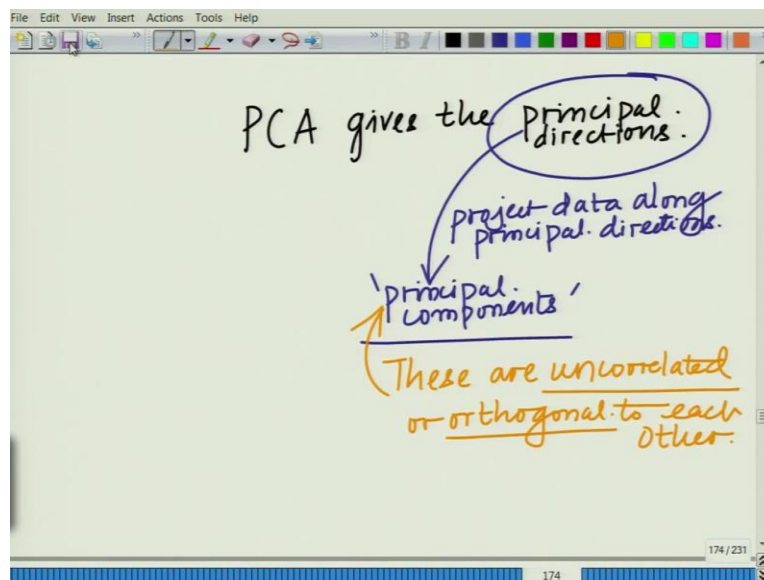 File Edit View Insert Actions Tools Help
PCA gives the principal.
directions.
project data along
principal. directions.
'principal.
components'
These are uncorrelated
or orthogonal. to each
other.
174/231
174